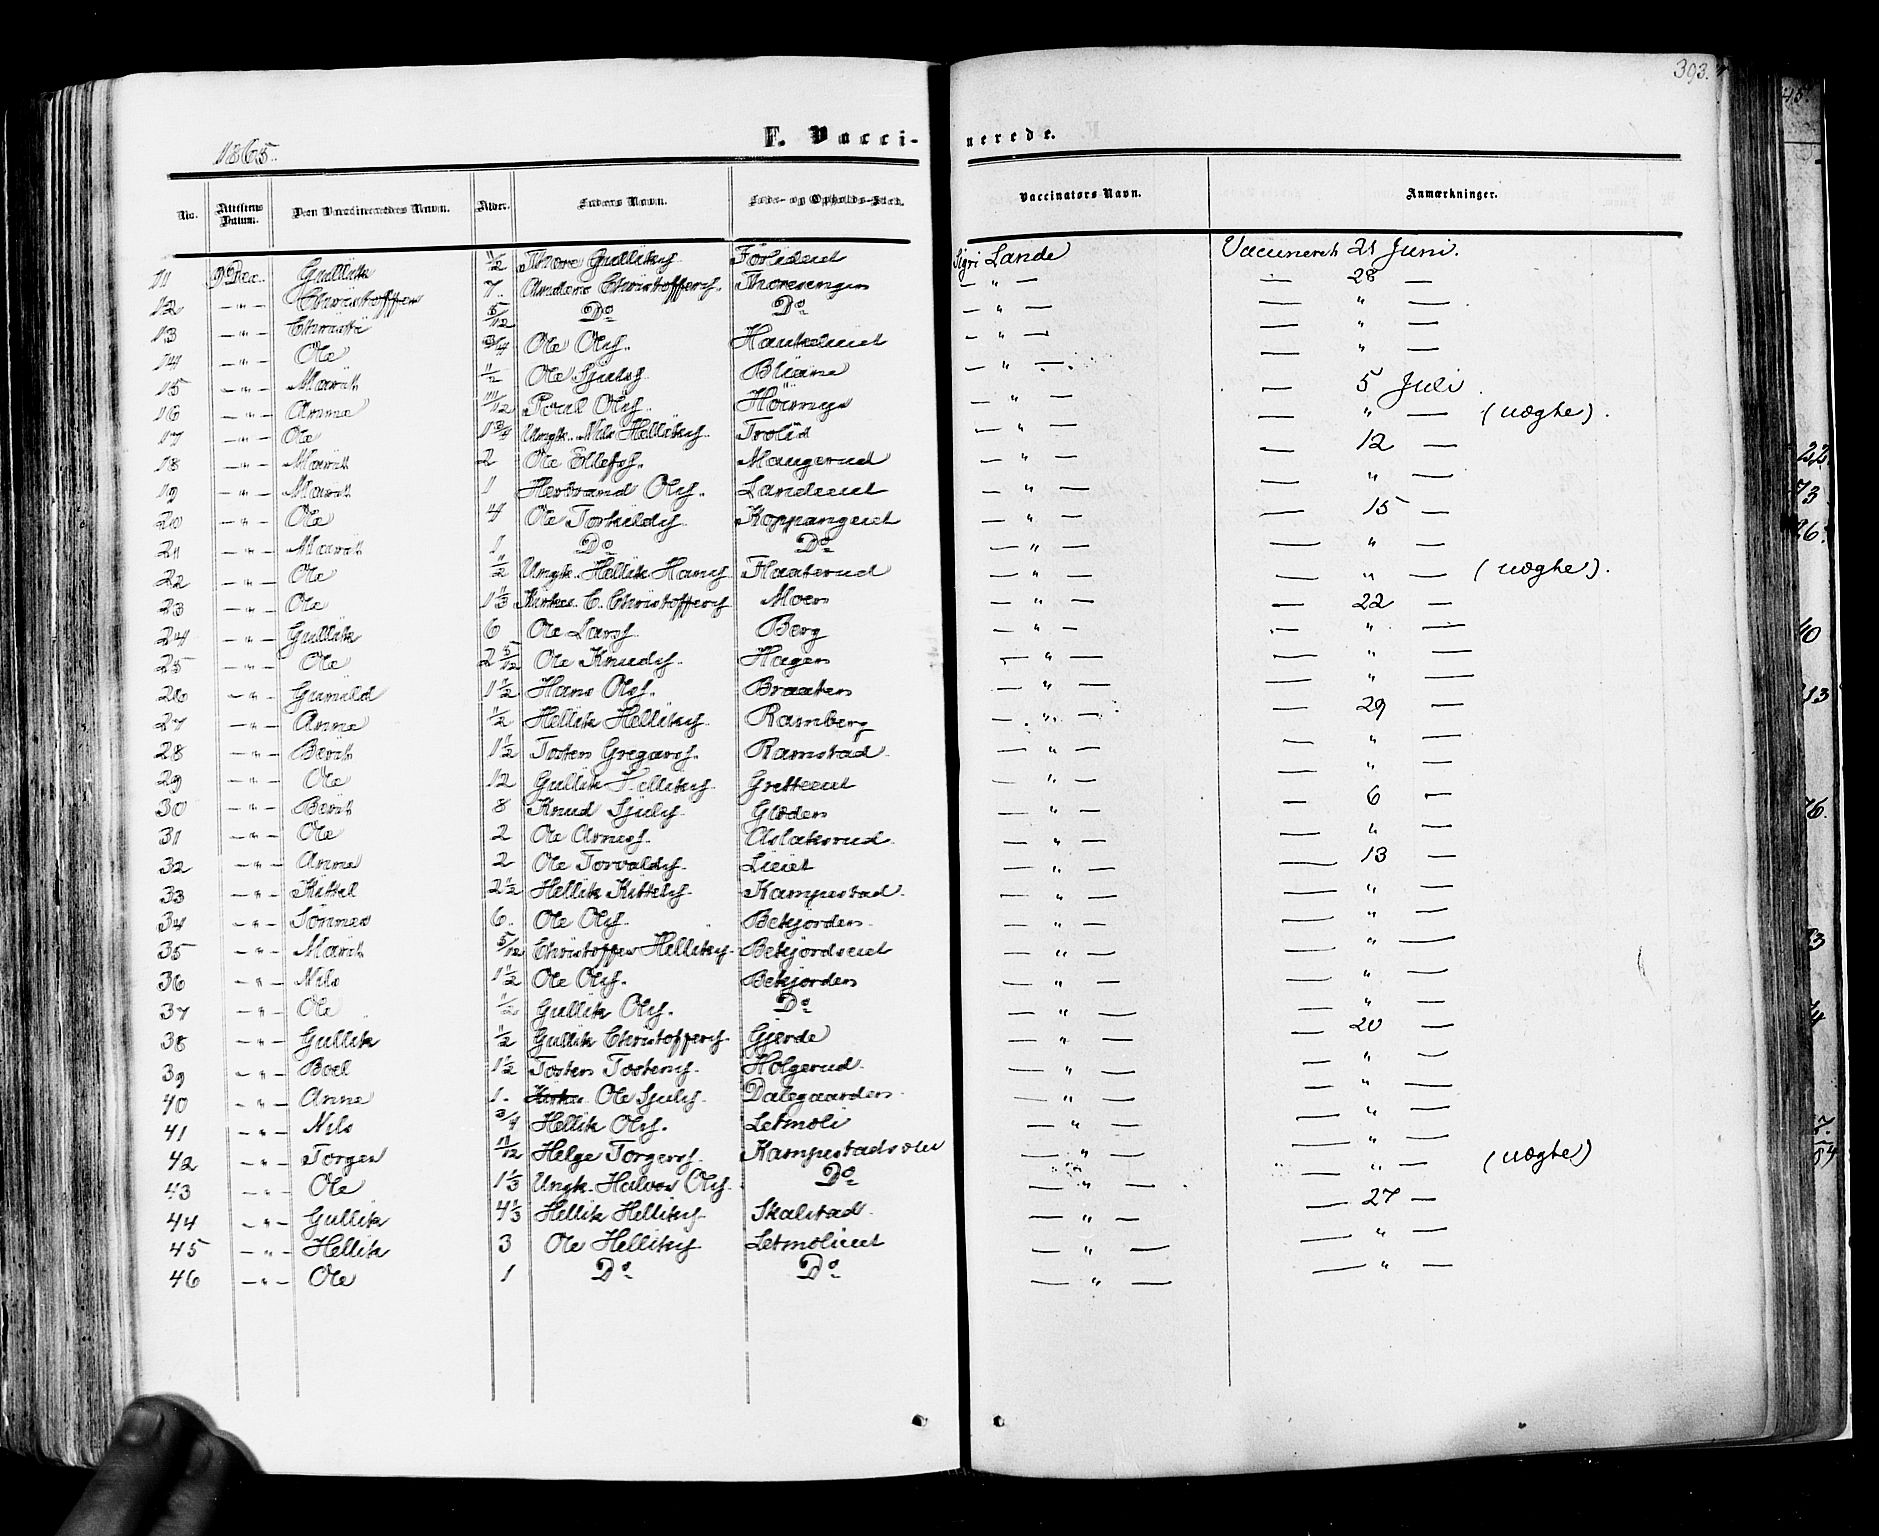 393.
1865.
F. Vacci-
nerede.
No. Attestens Datum. Den Vaccineredes Navn. Alder. Faders Navn. Føde- og Opholds-Sted. Vaccinators Navn. Anmærkninger.
11 9 Dec. Gullik 1/2 Thore Gulliks. Förlieiet Sigri Lande Vaccineret 21 Juni.
12 — " — Christoffer 7 Anders Christoffers. Thoresengen — " — — 28 —
13 — " — Christi 5/12 Do Do — " — — " —
14 — " — Ole 3/4 Ole Ols. — " — — " —
15 — " — Marit 1/2 Ole Sjuls. — " — — " —
16 — " — Anne 11/12 Paul Ols. — " — — 5 Juli
17 — " — Ole 1 3/4 Ungk. Nils Helliks. Trolid — " — — " — (uægte).
18 — " — Marit 2 Ole Ellefs. Maugerud — " — — 12 —
19 — " — Marit 1 Herbrand Ols. Landeiet — " — — " —
20 — " — Ole 4 Ole Torkilds. Koppangeiet — " — — 15 —
21 — " — Marit 1 Do Do — " — — " —
22 — " — Ole 1/2 Ungk. Hellik Hans. Flaaterud — " — — " — (uægte).
23 — " — Ole 1 1/3 C. Christoffers. Moen — " — — 22 —
24 — " — Gullik 6 Ole Lars. Berg — " — — " —
25 — " — Ole 2 5/12 Ole Knuds. Hagen — " — — " —
26 — " — Gunild 1 1/2 Hans Ols. Braaten — " — — " —
27 — " — Anne 1/2 Hellik Helliks. Ramberg — " — — 29 —
28 — " — Berit 1 1/2 Tosten Gregars. Ramstad — " — — " —
29 — " — Ole 12 Gullik Helliks. Gretteeiet — " — — " —
30 — " — Berit 8 Knud Sjuls. Gloden — " — — 6 —
31 — " — Ole 2 Ole Arnes. Aslaksrud — " — — " —
32 — " — Anne 2 Ole Torvalds. Lieiet — " — — 13 —
33 — " — Kittel 2 1/2 Hellik Kittels. Kampestad — " — — " —
34 — " — Sönnev 6 Ole Ols. Bekjorden — " — — " —
35 — " — Marit 5/12 Christoffer Helliks. Bekjordseiet — " — — " —
36 — " — Nils 1 1/2 Ole Ols. Bekjorden — " — — " —
37 — " — Ole 1/2 Gullik Ols. Do — " — — " —
38 — " — Gullik 1/2 Gullik Christoffers. Gjerde — " — — 20 —
39 — " — Boel 1 1/2 Tosten Tostens. Holgerud — " — — " —
40 — " — Anne 1 Ole Sjuls. Dalegaarden — " — — " —
41 — " — Nils 3/4 Hellik Ols. Letmoli — " — — " —
42 — " — Torger 11/12 Helge Torgers. — " — — " —
43 — " — Ole 1 1/3 Ungk. Halvor Ols. Do — " — — " — (uægte)
44 — " — Gullik 4 1/3 Hellik Helliks. Skalstad — " — — 27 —
45 — " — Hellik 3 Ole Helliks. Letmolieiet — " — — " —
46 — " — Ole 1 Do Do — " — — " —